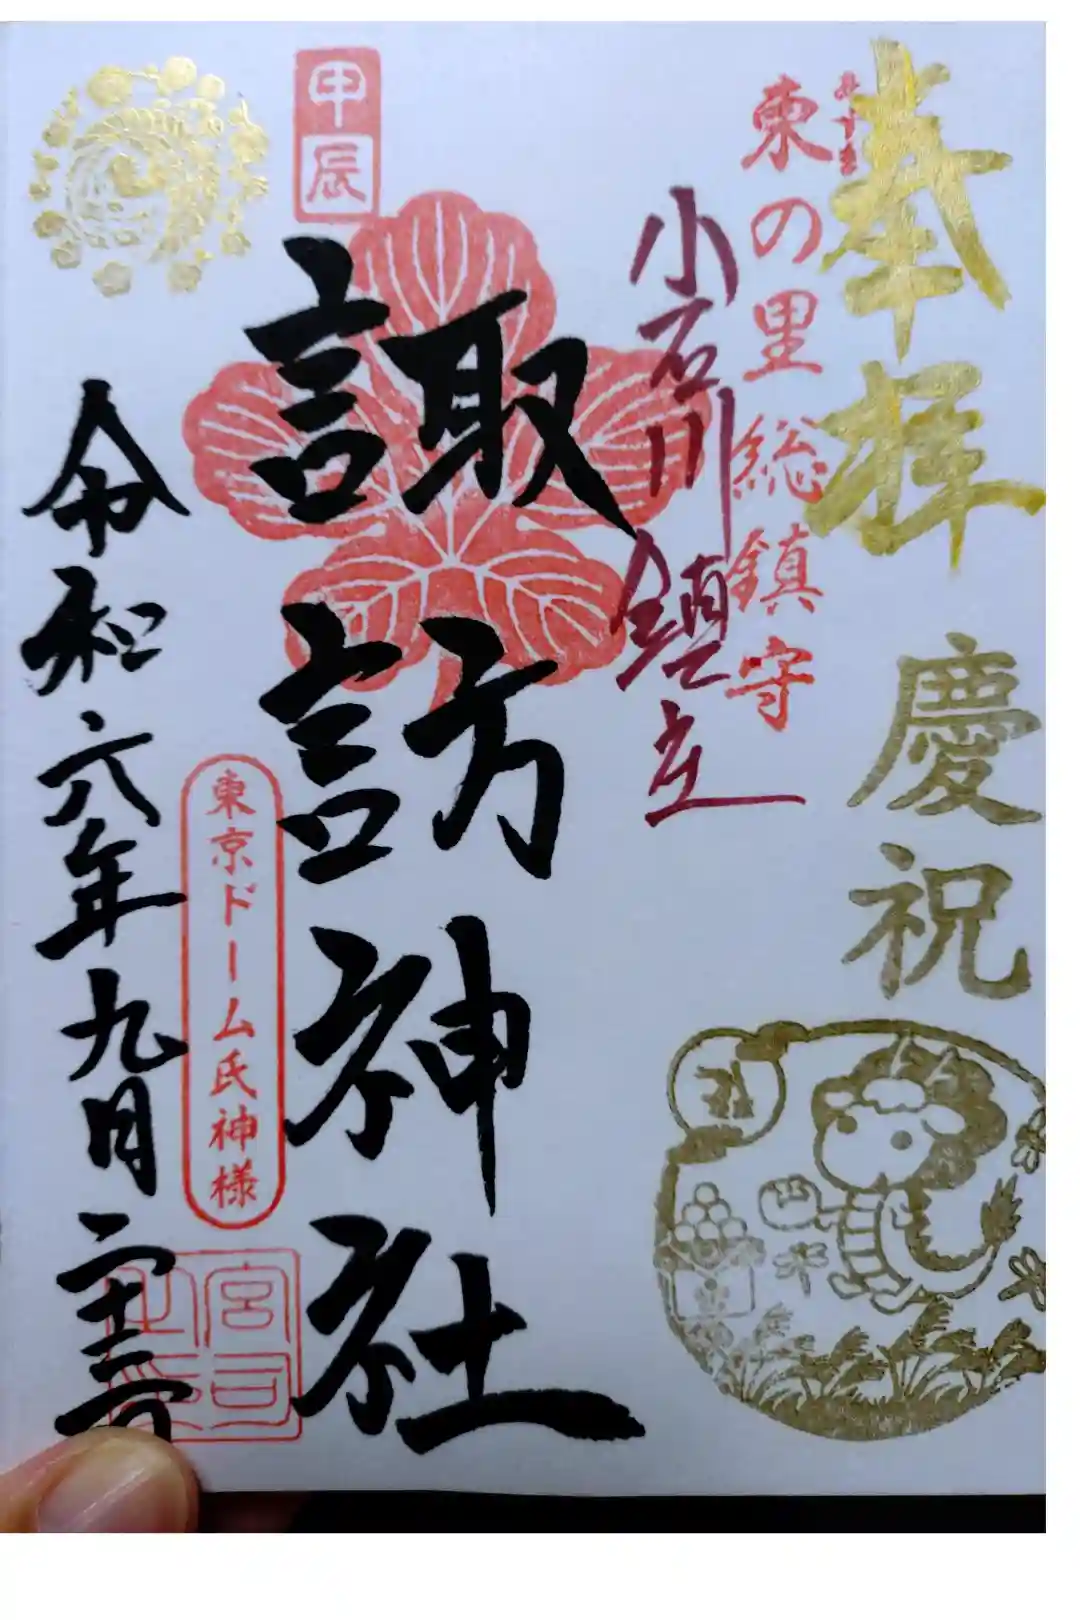 奉拝
慶祝
東の里総鎮守
小石川鎮座
甲辰
諏訪神社
東京ドーム氏神様
宮司之印
令和六年九月二十三日